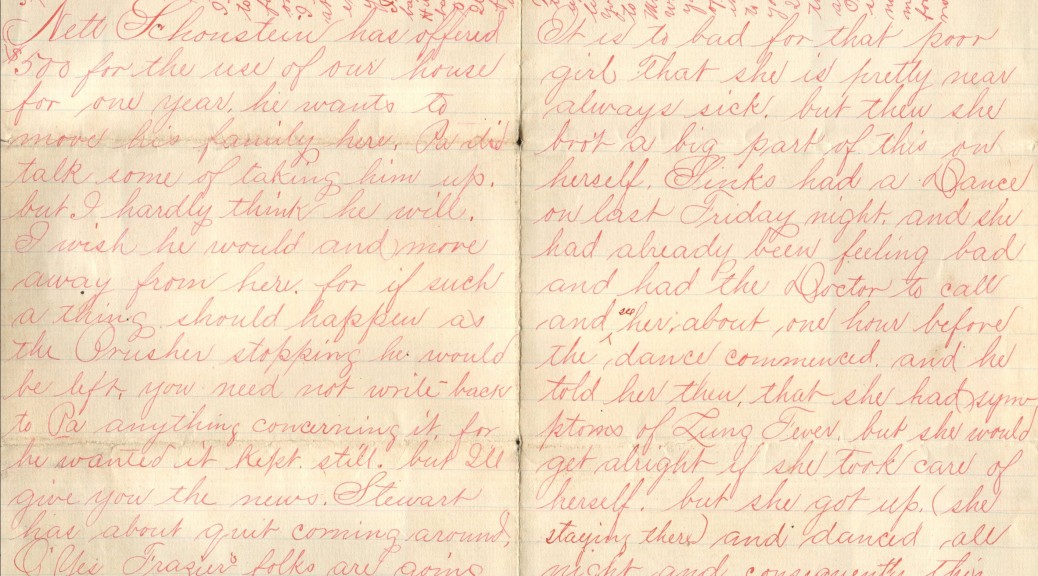 Nett Schonstein has offered
$500 for the use of our house
for one year. he wants to
move his family here. Pa did
talk some of taking him up.
but I hardly think he will.
I wish he would and move
away from here. for if such
a thing should happen as
the Crusher stopping he would
be left, you need not write back
to Pa anything concerning it. for
he wanted it kept still. but I'll
give you the news. Stewart
has about quit coming around.
Frazier's folks are going
It is to bad for that poor
girl that she is pretty near
always sick. but then she
a big part of this on
herself. had a Dance
on last Friday night. and she
had already been feeling bad
and had the Doctor to call
and see her, about one hour before
the dance commenced. and he
told her then, that she had sym-
ptoms of Lung Fever. but she would
get alright if she took care of
herself. but she got up. (she
staying there) and danced all
night and consequently this